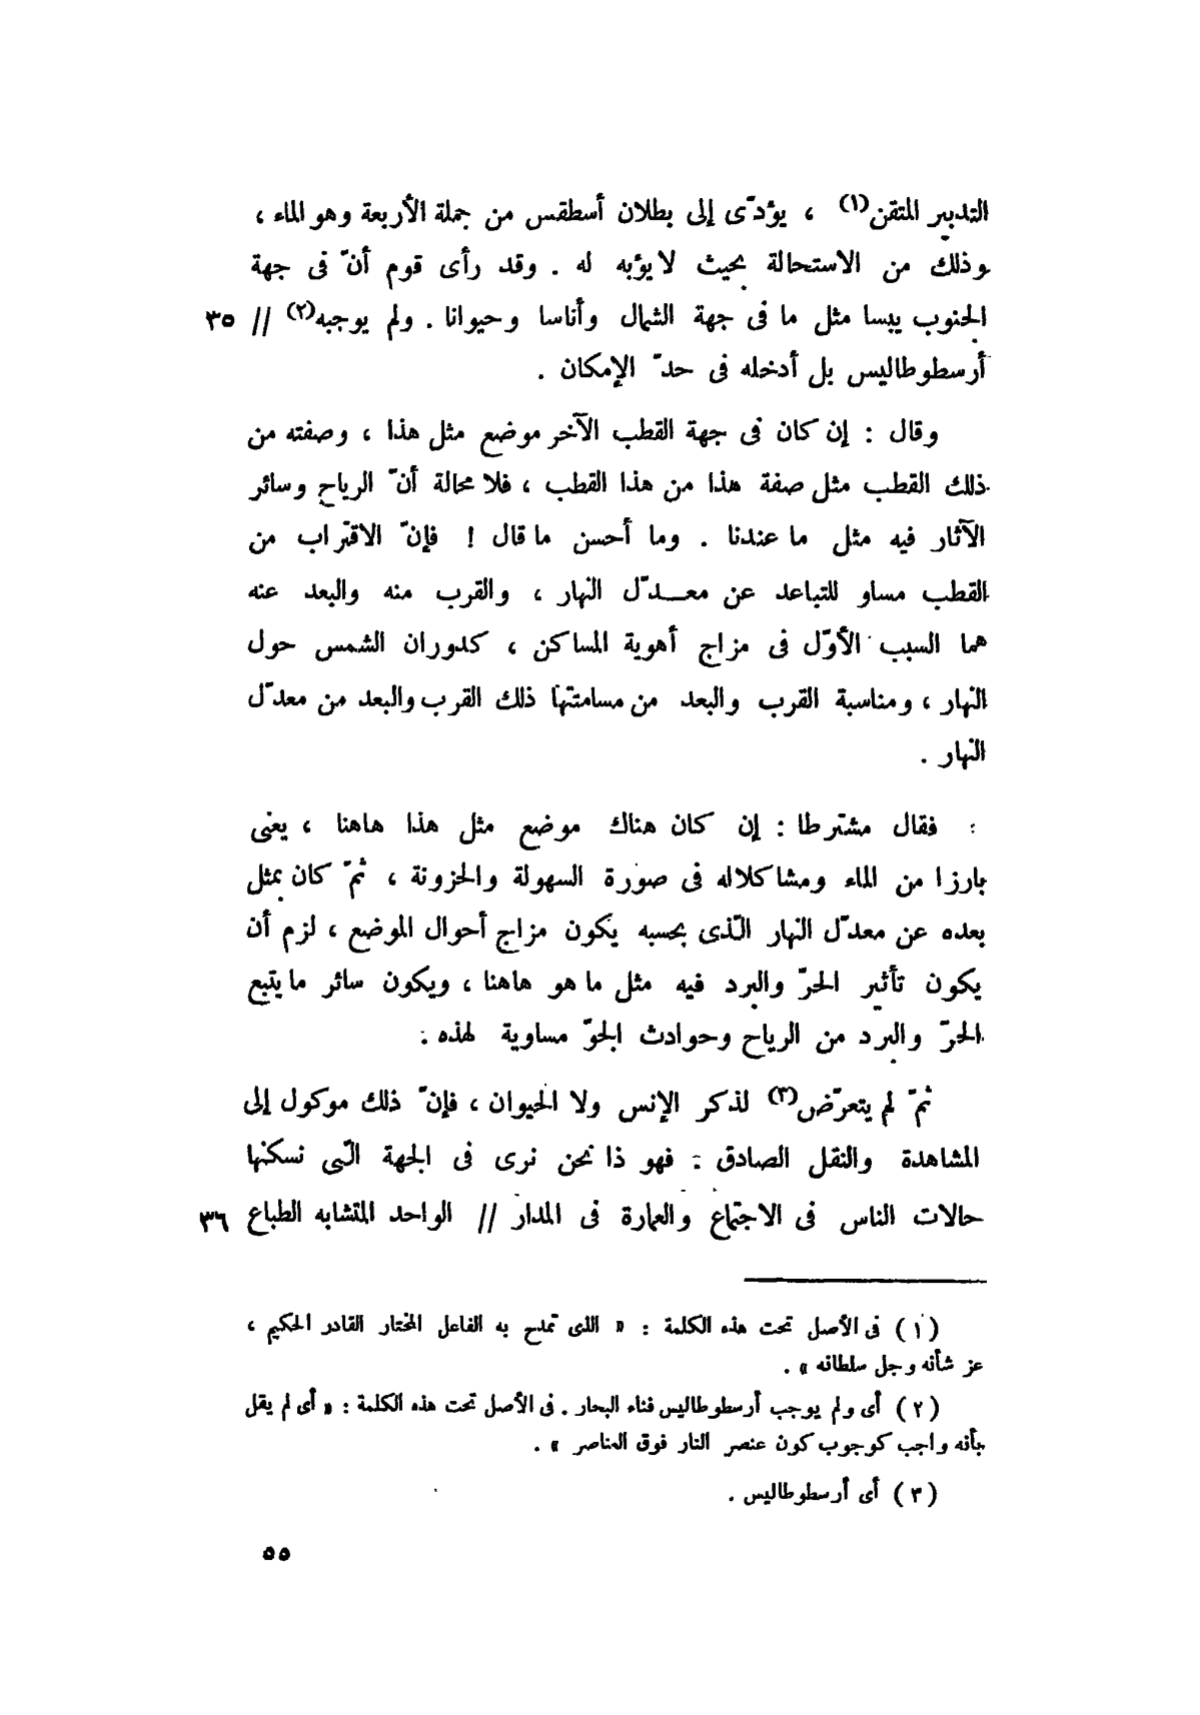 التدبير المتقن(١) ، يؤدّى إلى بطلان أسطقس من جملة الأربعة وهو الماء ،
وذلك من الاستحالة بحيث لا يؤبه له . وقد رأى قوم أنّ فى جهة
الجنوب يبسا مثل ما فى جهة الشمال وأناسا وحيوانا . ولم يوجبه(٢) // ٣٥
أرسطوطاليس بل أدخله فى حدّ الإمكان .
وقال : إن كان فى جهة القطب الآخر موضع مثل هذا ، وصفته من
ذلك القطب مثل صفة هذا من هذا القطب ، فلا محالة أنّ الرياح وسائر
الآثار فيه مثل ما عندنا . وما أحسن ما قال ! فإنّ الاقتراب من
القطب مساو للتباعد عن معــدّل النهار ، والقرب منه والبعد عنه
هما السبب الأوّل فى مزاج أهوية المساكن ، كدوران الشمس حول
النهار ، ومناسبة القرب والبعد من مسامتتها ذلك القرب والبعد من معدّل
النهار .
فقال مشترطا : إن كان هناك موضع مثل هذا هاهنا ، يعنى
بارزا من الماء ومشاكلاله فى صورة السهولة والحزونة ، ثمّ كان بمثل
بعده عن معدّل النهار الّذى بحسبه يكون مزاج أحوال الموضع ، لزم أن
يكون تأثير الحرّ والبرد فيه مثل ما هو هاهنا ، ويكون سائر ما يتبع
الحرّ والبرد من الرياح وحوادث الجوّ مساوية لهذه .
ثمّ لم يتعرّض(٣) لذكر الإنس ولا الحيوان ، فإنّ ذلك موكول إلى
المشاهدة والنقل الصادق . فهو ذا نحن نرى فى الجهة الّتى نسكنها
حالات الناس فى الاجتماع والعمارة فى المدار // الواحد المتشابه الطباع ٣٦
(١) فى الأصل تحت هذه الكلمة : « الذى تمدح به الفاعل المختار القادر الحكيم ،
عز شأنه وجل سلطانه » .
(٢) أى ولم يوجب أرسطوطاليس فناء البحار . فى الأصل تحت هذه الكلمة : « أى لم يقل
بأنه واجب كوجوب كون عنصر النار فوق العناصر » .
(٣) أى أرسطوطاليس .
٥٥